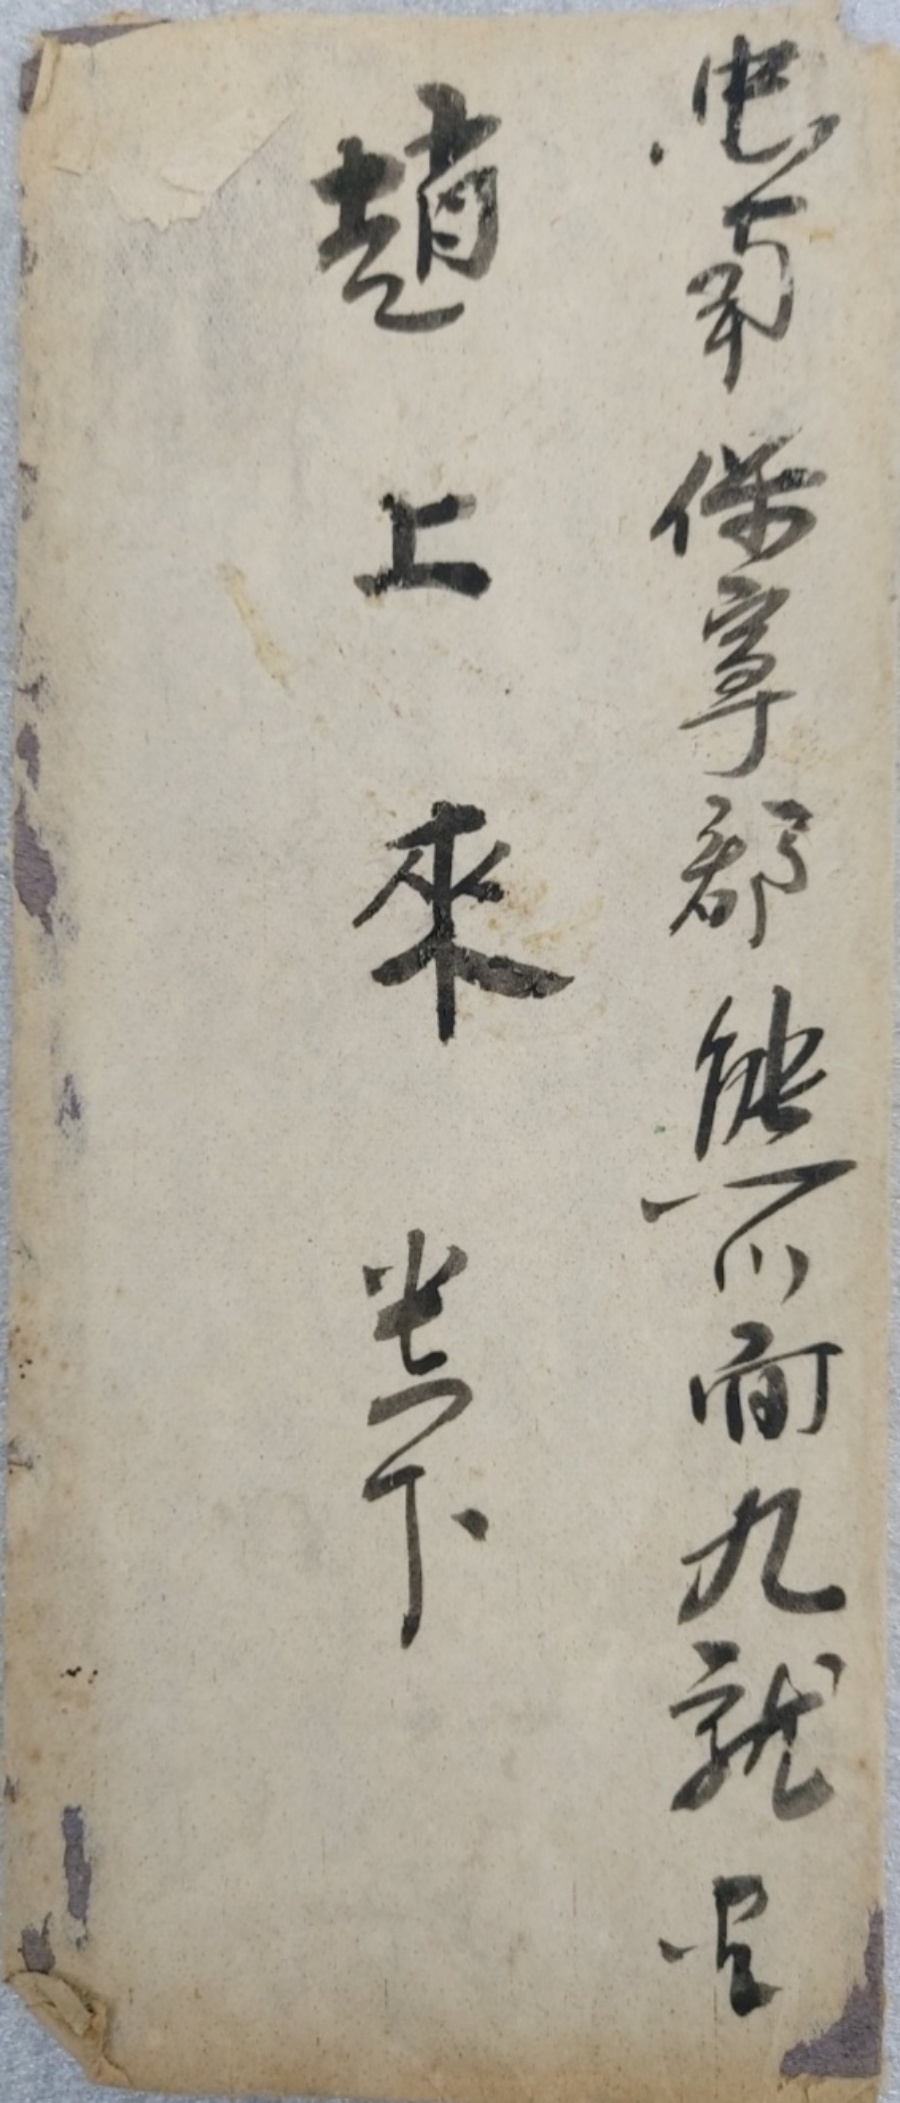 忠南保寧郡熊川面九龍里
趙上來 下